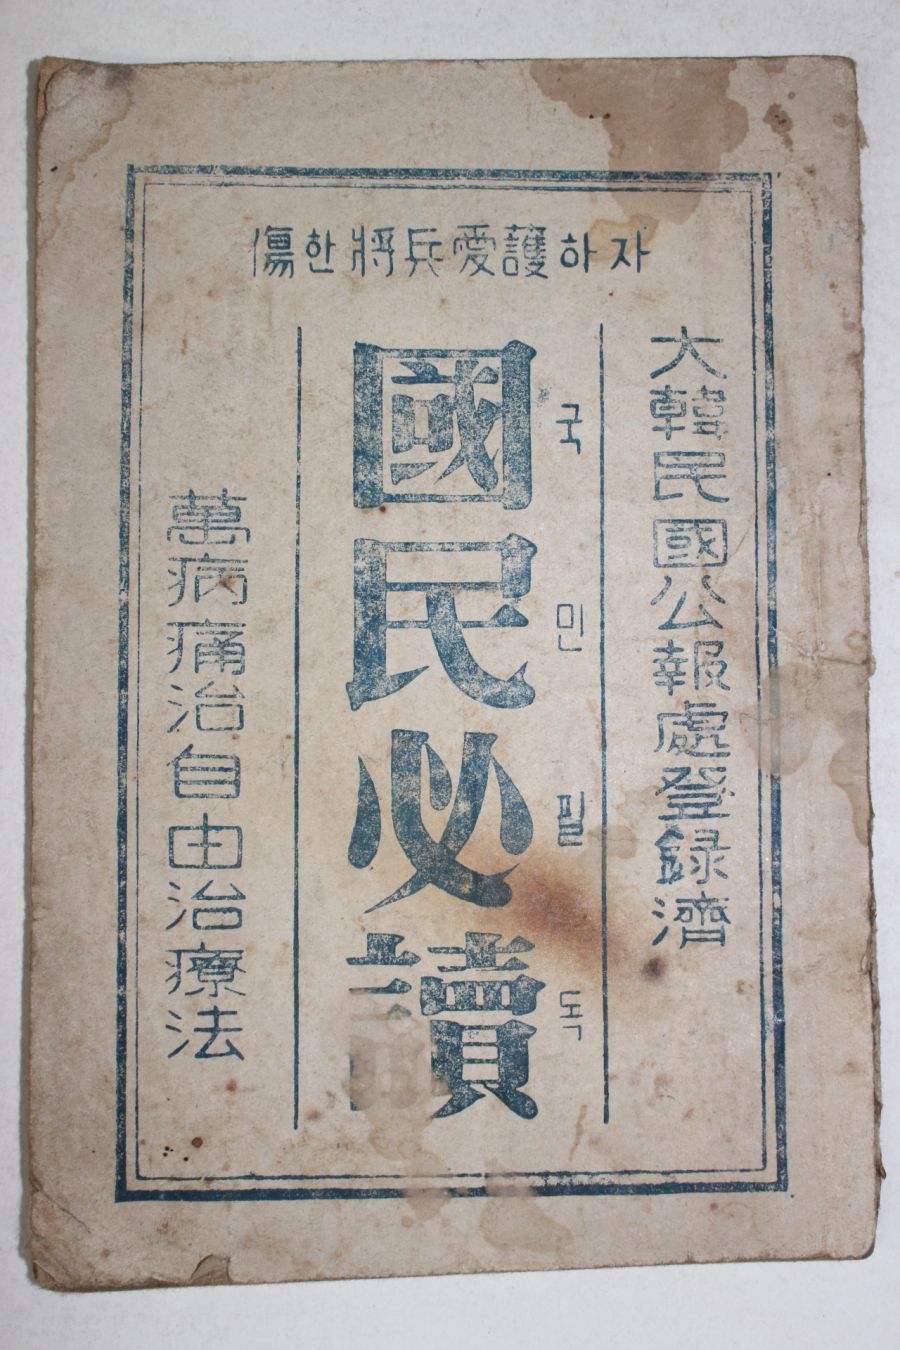 傷한將兵愛護하자
大韓民國公報處登録濟
國民必讀
국민필독
萬病痛治自由治療法